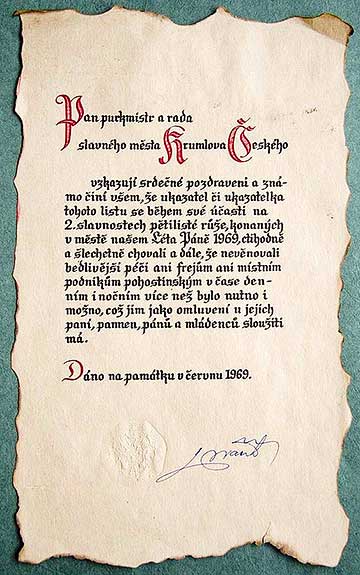 Pan purkmistr a rada
slavného města Krumlova Českého
vzkazují srdečné pozdraveni a zná-
mo činí všem, že ukazatel či ukazatelka
tohoto listu se během své účasti na
2. slavnostech pětilisté růže, konaných
v městě našem Léta Páně 1969, ctihodně
a šlechetně chovali a dále, že nevěnovali
bedlivější péči ani frejům ani místním
podnikům pohostinským v čase den-
ním i nočním více než bylo nutno i
možno, což jim jako omluvení u jejich
paní, pannen, pánů a mládenců sloužiti
má.
Dáno na památku v červnu 1969.